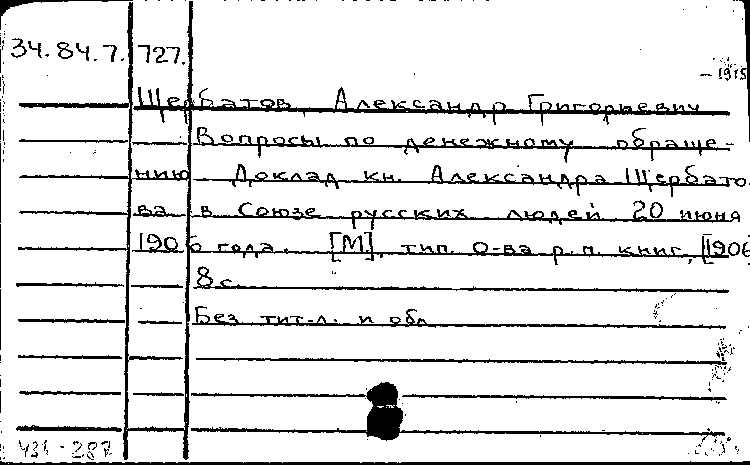 34.84.7. 727.
– 1915
Щербатов, Александр Григорьевич
Вопросы по денежному обраще-
нию. Доклад кн. Александра Щербато-
ва в Союзе русских людей 20 июня
1906 года. [М], тип. о-ва р.п. книг, [1906
8 с.
Без тит.л. и обл
431-287